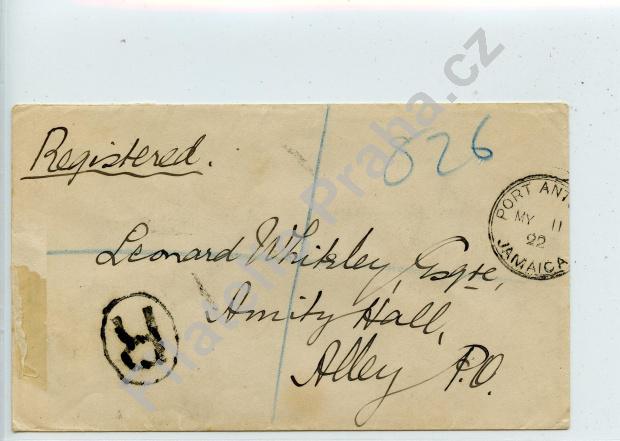 Registered.
826
PORT ANT
MY 11
22
JAMAICA
Leonard Whiteley, Esqre,
Amity Hall,
Alley P.O.
R
Filatelie-Praha.cz